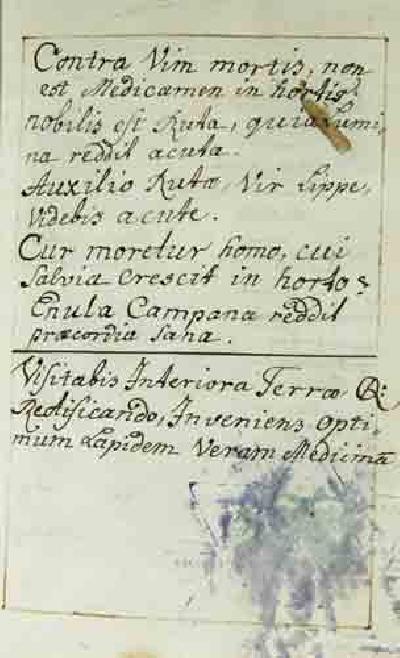 Contra Vim mortis, non
est Medicamen in hortis.
nobilis est Ruta, quia lumi,
na reddit acuta.
Auxilio Rutæ, Vir Lippe,
videbis acute.
Cur moretur homo, cui
Salvia Crescit in horto?
Enula Campana reddit
præcordia Sana.
Visitabis Interiora Terræ,
Rectificando, Inveniens opti,
mum Lapidem Veram Medicinā